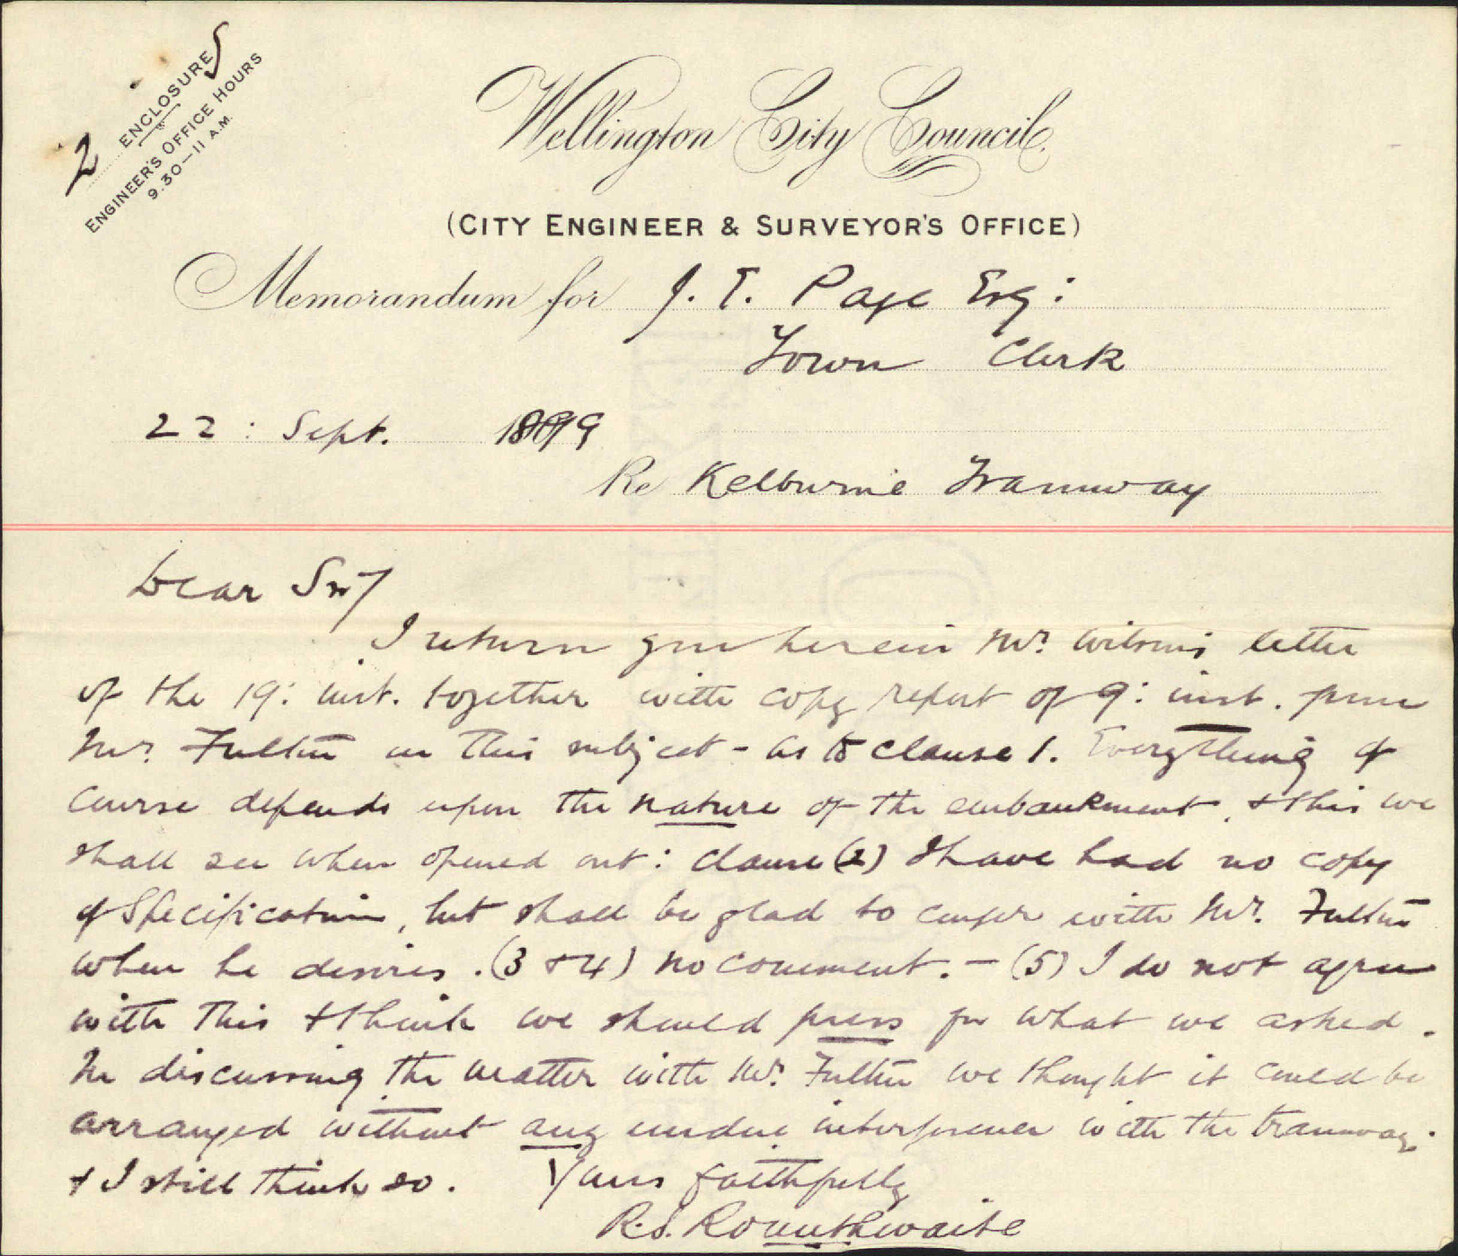 2 ENCLOSURES
ENGINEER'S OFFICE HOURS
9.30–11 A.M.
Wellington City Council.
(CITY ENGINEER & SURVEYOR'S OFFICE)
Memorandum for J. E. Page Esq:
Town Clerk
22: Sept. 1899
Re Kelburne Tramway
Dear Sir/
I return you herein Mr. Wilson's letter
of the 19: inst. together with copy report of 9: inst. from
Mr. Fulton on this subject – as to clause 1. Everything of
course depends upon the nature of the embankment, & this we
shall see when opened out: clause (2) I have had no copy
of Specification, but shall be glad to confer with Mr. Fulton
when he desires. (3 & 4) no comment. – (5) I do not agree
with this & think we should press for what we asked.
In discussing the matter with Mr. Fulton we thought it could be
arranged without any undue interference with the tramway.
& I still think so. Yours faithfully
R.S. Rounthwaite